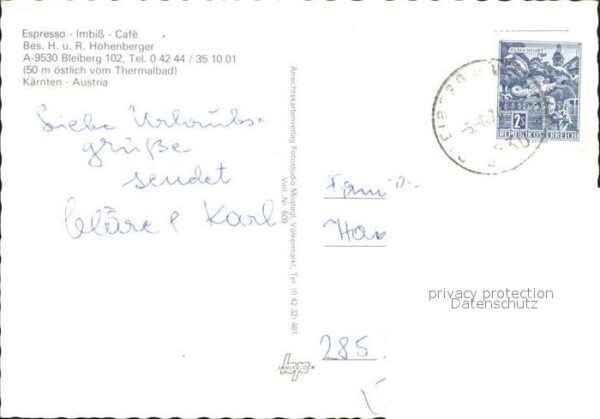 Espresso - Imbiß - Café
Bes. H. u. R. Hohenberger
A-9530 Bleiberg 102, Tel. 0 42 44 / 35 10 01
(50 m östlich vom Thermalbad)
Kärnten - Austria
Liebe Urlaubs-
grüße
sendet
Kläre & Karl
Ansichtskartenverlag Fotostudio Mossegl, Völkermarkt, Tel. (0 42 32) 481
Verl.-Nr. 609
KLAGENFURT
2
REPUBLIK ÖSTERREICH
285
privacy protection
Datenschutz